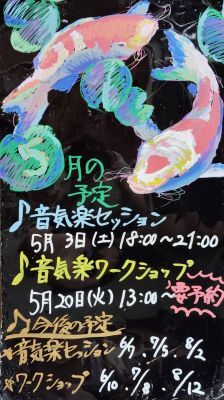 5月の予定
♪音気楽セッション
5月3日(土)18:00~21:00
♪音気楽ワークショップ
5月20日(火)13:00~要予約
♪今後の予定
☆音気楽セッション 6/7. 7/5. 8/2
☆ワークショップ 6/10. 7/8. 8/12